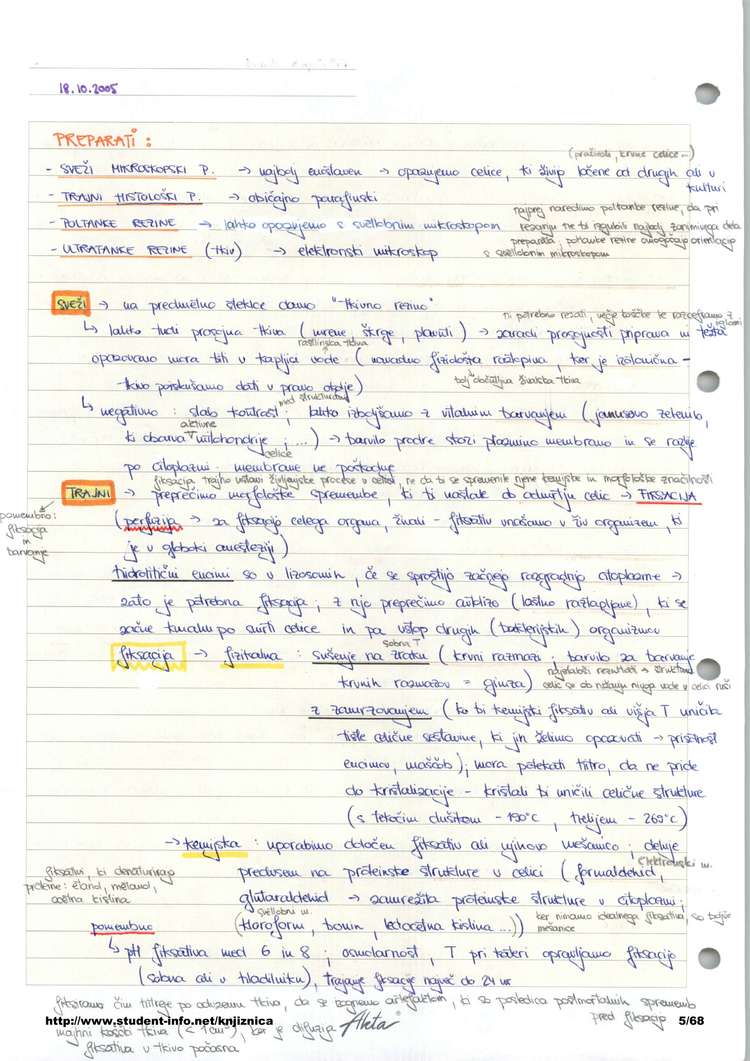 18.10.2005
PREPARATI :
(praživali, krvne celice ...)
- SVEŽI MIKROSKOPSKI P. → najbolj enostaven → opazujemo celice, ki živijo ločene od drugih ali v kulturi
- TRAJNI HISTOLOŠKI P. → običajno parafinski
najprej naredimo poltanke rezine, da pri
- POLTANKE REZINE → lahko opazujemo s svetlobnim mikroskopom
rezanju ne bi izgubili najbolj zanimivega dela
preparata, poltanke rezine omogočajo orientacijo
- ULTRATANKE REZINE (tkiv) → elektronski mikroskop
s svetlobnim mikroskopom
SVEŽI → na predmetno stekelce damo "tkivno rezino"
ni potrebno rezati, večje koščke le razceframo z iglami
↳ lahko tudi prosojna tkiva (mrene, škrge, plavuti) → zaradi prosojnosti priprava ni težka
rastlinska tkiva
opazovano mora biti v kapljici vode (navadno fiziološka raztopina, ker je izotonična -
bolj občutljiva živalska tkiva
tkivo poizkušamo dati v pravo okolje)
med strukturami
↳ negativno : slab kontrast ; lahko izboljšamo z vitalnim barvanjem (janusovo zelenilo,
aktivne
ki obarva mitohondrije ; ...) → barvilo prodre skozi plazmino membrano in se razlije
celice
po citoplazmi ; membrane ne poškoduje
fiksacija trajno ustavi življenjske procese v celici, ne da bi se spremenile njene kemijske in morfološke značilnosti
TRAJNI → preprečimo morfološke spremembe, ki bi nastale ob odmrtju celic → FIKSACIJA
pomembno:
fiksacija
in
barvanje
(perfuzija → za fiksacijo celega organa, živali - fiksativ vnašamo v živ organizem, ki
je v globoki anesteziji)
hidrolitični encimi so v lizosomih, če se sprostijo začnejo razgradnjo citoplazme →
zato je potrebna fiksacija ; z njo preprečimo avtolizo (lastno raztapljanje), ki se
začne kmalu po smrti celice in pa vstop drugih (bakterijskih) organizmov
sobna T
fiksacija → fizikalna : sušenje na zraku (krvni razmazi ; barvilo za barvanje
najslabši rezultati → struktura
krvnih razmazov = giemza)
celic se ob nižanju nivoja vode v celici ruši
z zamrzovanjem (ko bi kemijski fiksativ ali višja T uničila
tiste celične sestavine, ki jih želimo opazovati → prisotnost
encimov, maščob) ; mora potekati hitro, da ne pride
do kristalizacije - kristali bi uničili celične strukture
(s tekočim dušikom - 190°C, helijem - 269°C)
→ kemijska : uporabimo določen fiksativ ali njihovo mešanico ; deluje
elektronski m.
fiksativi, ki denaturirajo
proteine : etanol, metanol,
ocetna kislina
predvsem na proteinske strukture v celici (formaldehid,
glutaraldehid → zamrežita proteinske strukture v citoplazmi ;
svetlobni m.
ker nimamo idealnega fiksativa, so boljše mešanice
pomembno
(kloroform, bouin, ledocetna kislina ...))
↳ pH fiksativa med 6 in 8 ; osmolarnost, T pri kateri opravljamo fiksacijo
(sobna ali v hladilniku), trajanje fiksacije največ do 24 ur
fiksiramo čim hitreje po odvzemu tkiva, da se izognemo artefaktom, ki so posledica postmortalnih sprememb
pred fiksacijo
http://www.student-info.net/knjiznica
5/68
majhni koščki tkiva (< 1cm³), ker je difuzija
Akta®
fiksativa v tkivo počasna